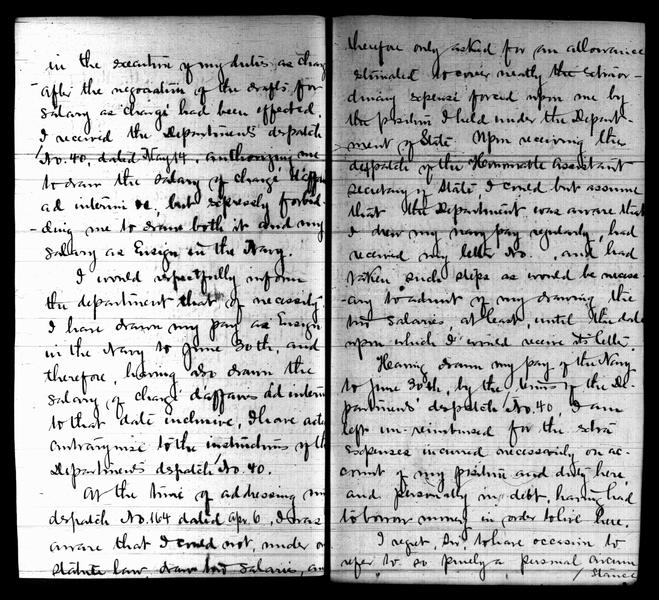 in the execution of my duties as charg
after the negociation of the drafts for
salary as chargé had been effected.
I received the Department's despatch
No. 40, dated May 14, authorizing me
to draw the salary of chargé d'affa
ad interim, but expressly forbid-
ding me to draw both it and my
salary as Ensign in the Navy.
I would respectfully inform
the department that of necessity
I have drawn my pay as Ensign
in the Navy to June 30th, and
therefore, having also drawn the
salary of chargé d'affaires ad interim
to that date inclusive, I have acted
contrarywise to the instructions of th
Departments dispatch No. 40.
At the time of addressing my
despatch No. 164 dated Apr. 6, I was
aware that I could not, under o
statute law, draw two salaries, an
therefore only asked for an allowance
estimated to cover neatly the extraor-
dinary expense forced upon me by
the position I held under the Depart-
ment of State. Upon receiving the
despatch of the Honorable Assistant
secretary of State, I could but assume
that the Department was aware that
I drew my navy pay regularly, had
received my letter No. , and had
taken such steps as would be necess-
ary to admit of my drawing the
two salaries, at least, until the date
upon which I would receive its letter.
Having drawn my pay of the Navy
to June 30th, by the terms of the De-
partments' despatch No. 40, I am
left un-reimbursed for the extra
expenses incurred necessarily on ac-
count of my position and duty here,
and personally in debt, having had
to borrow money in order to live here.
I regret, Sir, to have occasion to
refer to so purely a personal circum
stance